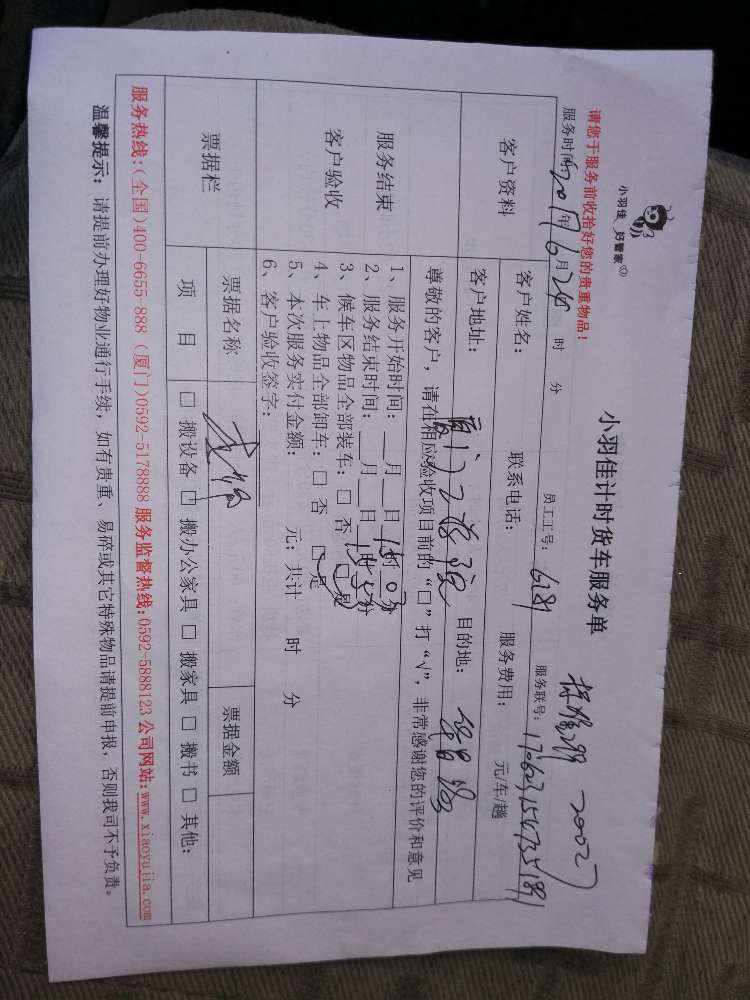 小羽佳 好管家
小羽佳计时货车服务单
2002
请您于服务前收拾好您的贵重物品!
服务时间:2017年6月24 时 分 员工工号: 服务联号:
客户资料 客户姓名: 联系电话: 服务费用: 元/车/趟
客户地址: 目的地:
服务结束
客户验收
尊敬的客户,请在相应验收项目前的“□”打“√”,非常感谢您的评价和意见
1、服务开始时间:__月__日15时03分
2、服务结束时间:__月__日15时55分
3、候车区物品全部装车:□ 否 □ 是
4、车上物品全部卸车:□ 否 □ 是
5、本次服务实付金额: 元; 共计 时 分
6、客户验收签字:
票据栏 票据名称 票据金额
项 目 □ 搬设备 □ 搬办公家具 □ 搬家具 □ 搬书 □ 其他:
服务热线:(全国)400-6655-888 (厦门)0592-5178888 服务监督热线:0592-5888123 公司网站:www.xiaoyujia.com
温馨提示: 请提前办理好物业通行手续,如有贵重、易碎或其它特殊物品请提前申报,否则我司不予负责。